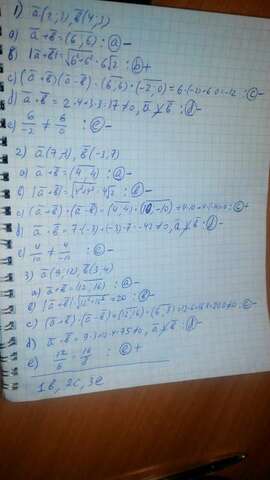 1) a̅(2;3), b̅(4;3)
a) a̅+b̅=(6;6) : ⓐ-
b) |a̅+b̅|=√6²+6²=6√2 : ⓑ+
c) (a̅+b̅)(a̅-b̅)=(6;6)·(-2;0)=6·(-2)+6·0=-12 : ⓒ-
d) a̅·b̅=2·4+3·3=17≠0, a̅⊥̸b̅ : ⓓ-
e) 6/-2 ≠ 6/0 : ⓔ-
2) a̅(7;-3), b̅(-3;7)
a) a̅+b̅=(4;4) : ⓐ-
b) |a̅+b̅|=√4²+4²=4√2 : ⓑ-
c) (a̅+b̅)·(a̅-b̅)=(4;4)·(10;-10)=4·10+4·(-10)=0 : ⓒ+
d) a̅·b̅=7·(-3)+(-3)·7=-42≠0, a̅⊥̸b̅ : ⓓ-
e) 4/10 ≠ 4/-10 : ⓔ-
3) a̅(9;12), b̅(3;4)
a) a̅+b̅=(12;16) : ⓐ-
b) |a̅+b̅|=√12²+16²=20 : ⓑ-
c) (a̅+b̅)·(a̅-b̅)=(12;16)·(6;8)=12·6+16·8=200≠0 : ⓒ-
d) a̅·b̅=9·3+12·4=75≠0, a̅⊥̸b̅ : ⓓ-
e) 12/6=16/8 : ⓔ+
1b, 2c, 3e